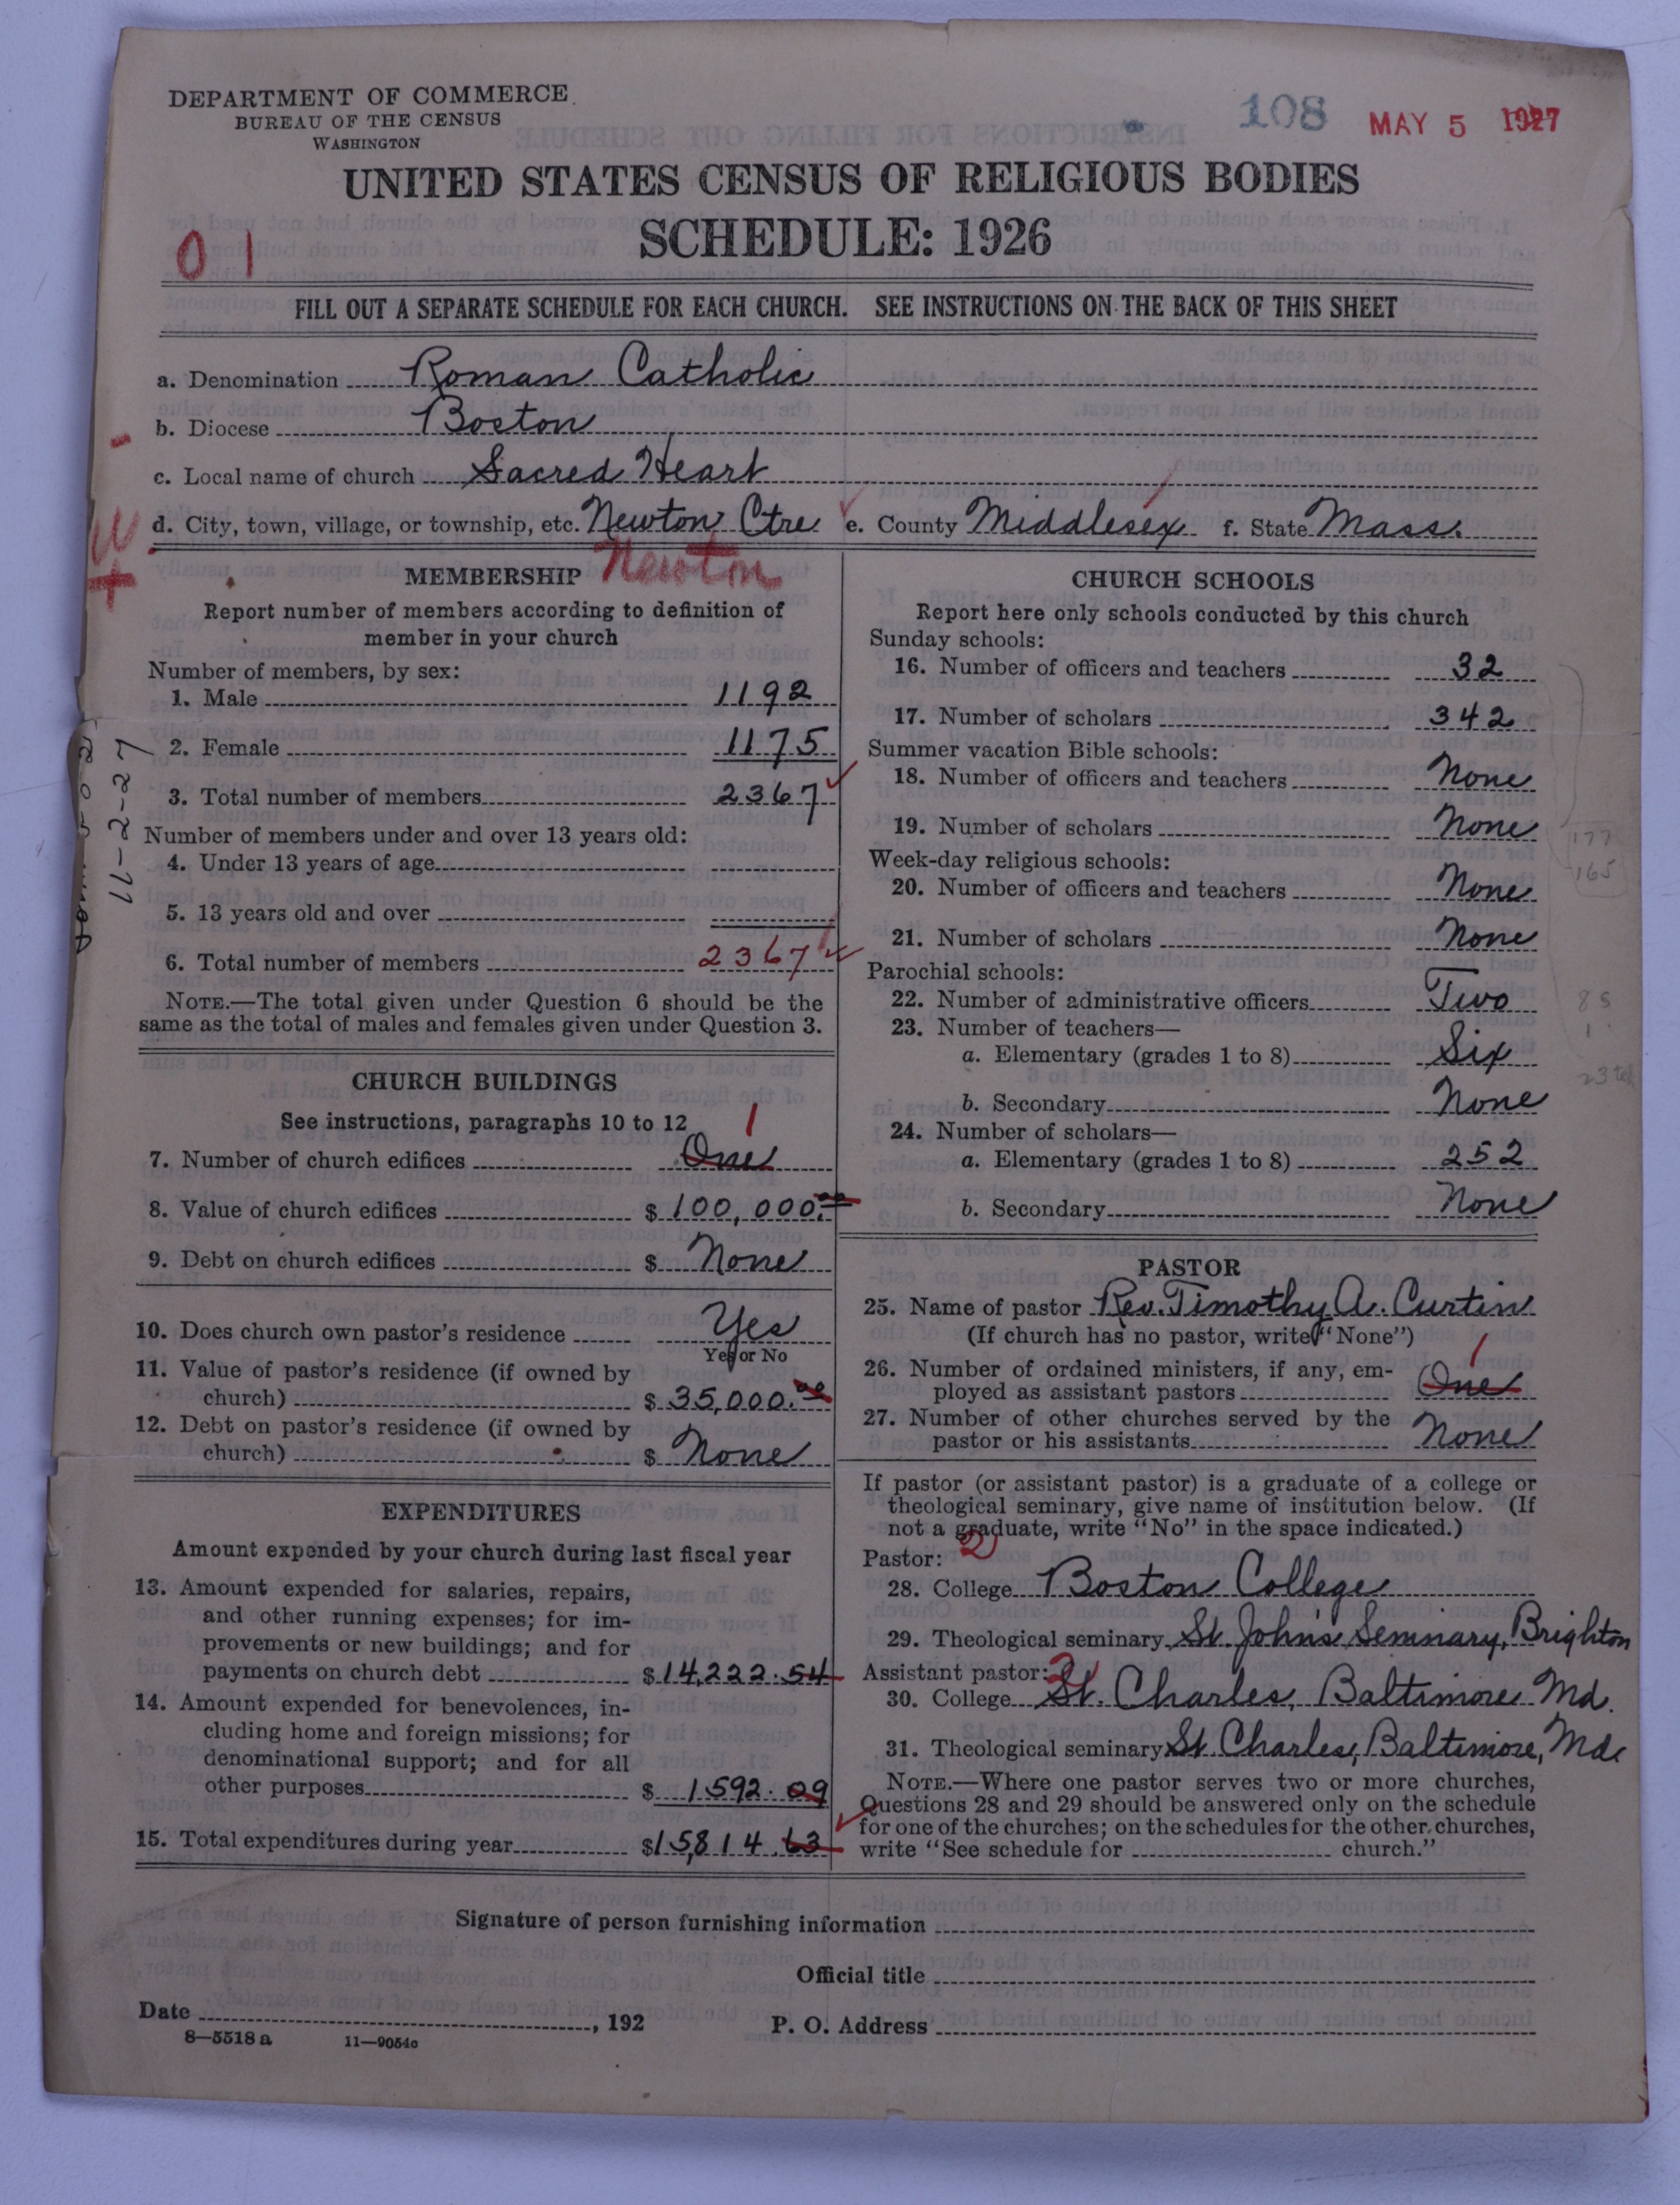 DEPARTMENT OF COMMERCE
BUREAU OF THE CENSUS
WASHINGTON
108 MAY 5 1927
UNITED STATES CENSUS OF RELIGIOUS BODIES
SCHEDULE: 1926
01
FILL OUT A SEPARATE SCHEDULE FOR EACH CHURCH. SEE INSTRUCTIONS ON THE BACK OF THIS SHEET
a. Denomination Roman Catholic
b. Diocese Boston
c. Local name of church Sacred Heart
d. City, town, village, or township, etc. Newton Ctre e. County Middlesex f. State Mass.
MEMBERSHIP Newton
Report number of members according to definition of
member in your church
Number of members, by sex:
1. Male 1192
2. Female 1175
3. Total number of members 2367
Number of members under and over 13 years old:
4. Under 13 years of age
5. 13 years old and over
6. Total number of members 2367
NOTE.—The total given under Question 6 should be the
same as the total of males and females given under Question 3.
11-2-27
CHURCH BUILDINGS
See instructions, paragraphs 10 to 12
1
7. Number of church edifices One
8. Value of church edifices $ 100,000.00
9. Debt on church edifices $ None
10. Does church own pastor's residence Yes
Yes or No
11. Value of pastor's residence (if owned by
church) $ 35,000.00
12. Debt on pastor's residence (if owned by
church) $ None
EXPENDITURES
Amount expended by your church during last fiscal year
13. Amount expended for salaries, repairs,
and other running expenses; for im-
provements or new buildings; and for
payments on church debt $14,222.54
14. Amount expended for benevolences, in-
cluding home and foreign missions; for
denominational support; and for all
other purposes $ 1592.09
15. Total expenditures during year $15,814.63
CHURCH SCHOOLS
Report here only schools conducted by this church
Sunday schools:
16. Number of officers and teachers 32
17. Number of scholars 342
Summer vacation Bible schools:
18. Number of officers and teachers None
19. Number of scholars None
177
165
Week-day religious schools:
20. Number of officers and teachers None
21. Number of scholars None
Parochial schools:
22. Number of administrative officers Two
23. Number of teachers—
a. Elementary (grades 1 to 8) Six
b. Secondary None
24. Number of scholars—
a. Elementary (grades 1 to 8) 252
b. Secondary None
PASTOR
25. Name of pastor Rev. Timothy A. Curtin
(If church has no pastor, write "None")
1
26. Number of ordained ministers, if any, em-
ployed as assistant pastors One
27. Number of other churches served by the
pastor or his assistants None
If pastor (or assistant pastor) is a graduate of a college or
theological seminary, give name of institution below. (If
not a graduate, write "No" in the space indicated.)
Pastor: 2
28. College Boston College
29. Theological seminary St. John's Seminary, Brighton
Assistant pastor: 2
30. College St. Charles, Baltimore Md.
31. Theological seminary St. Charles, Baltimore, Md.
NOTE.—Where one pastor serves two or more churches,
Questions 28 and 29 should be answered only on the schedule
for one of the churches; on the schedules for the other churches,
write "See schedule for church."
Signature of person furnishing information
Official title
Date , 192
P. O. Address
8—5518 a 11—9054c